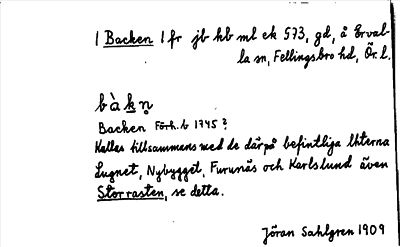 | Backen | fr jb hb ml ek 573, gd, å Erval-
la sn, Fellingsbro hd, Ör. l.
bàkn̥
Backen Förh. b 1745?
Kallas tillsammans med de därpå befintliga lhterna
Lugnet, Nybygget, Furunäs och Karlslund även
Storrasten, se detta.
Jöran Sahlgren 1909